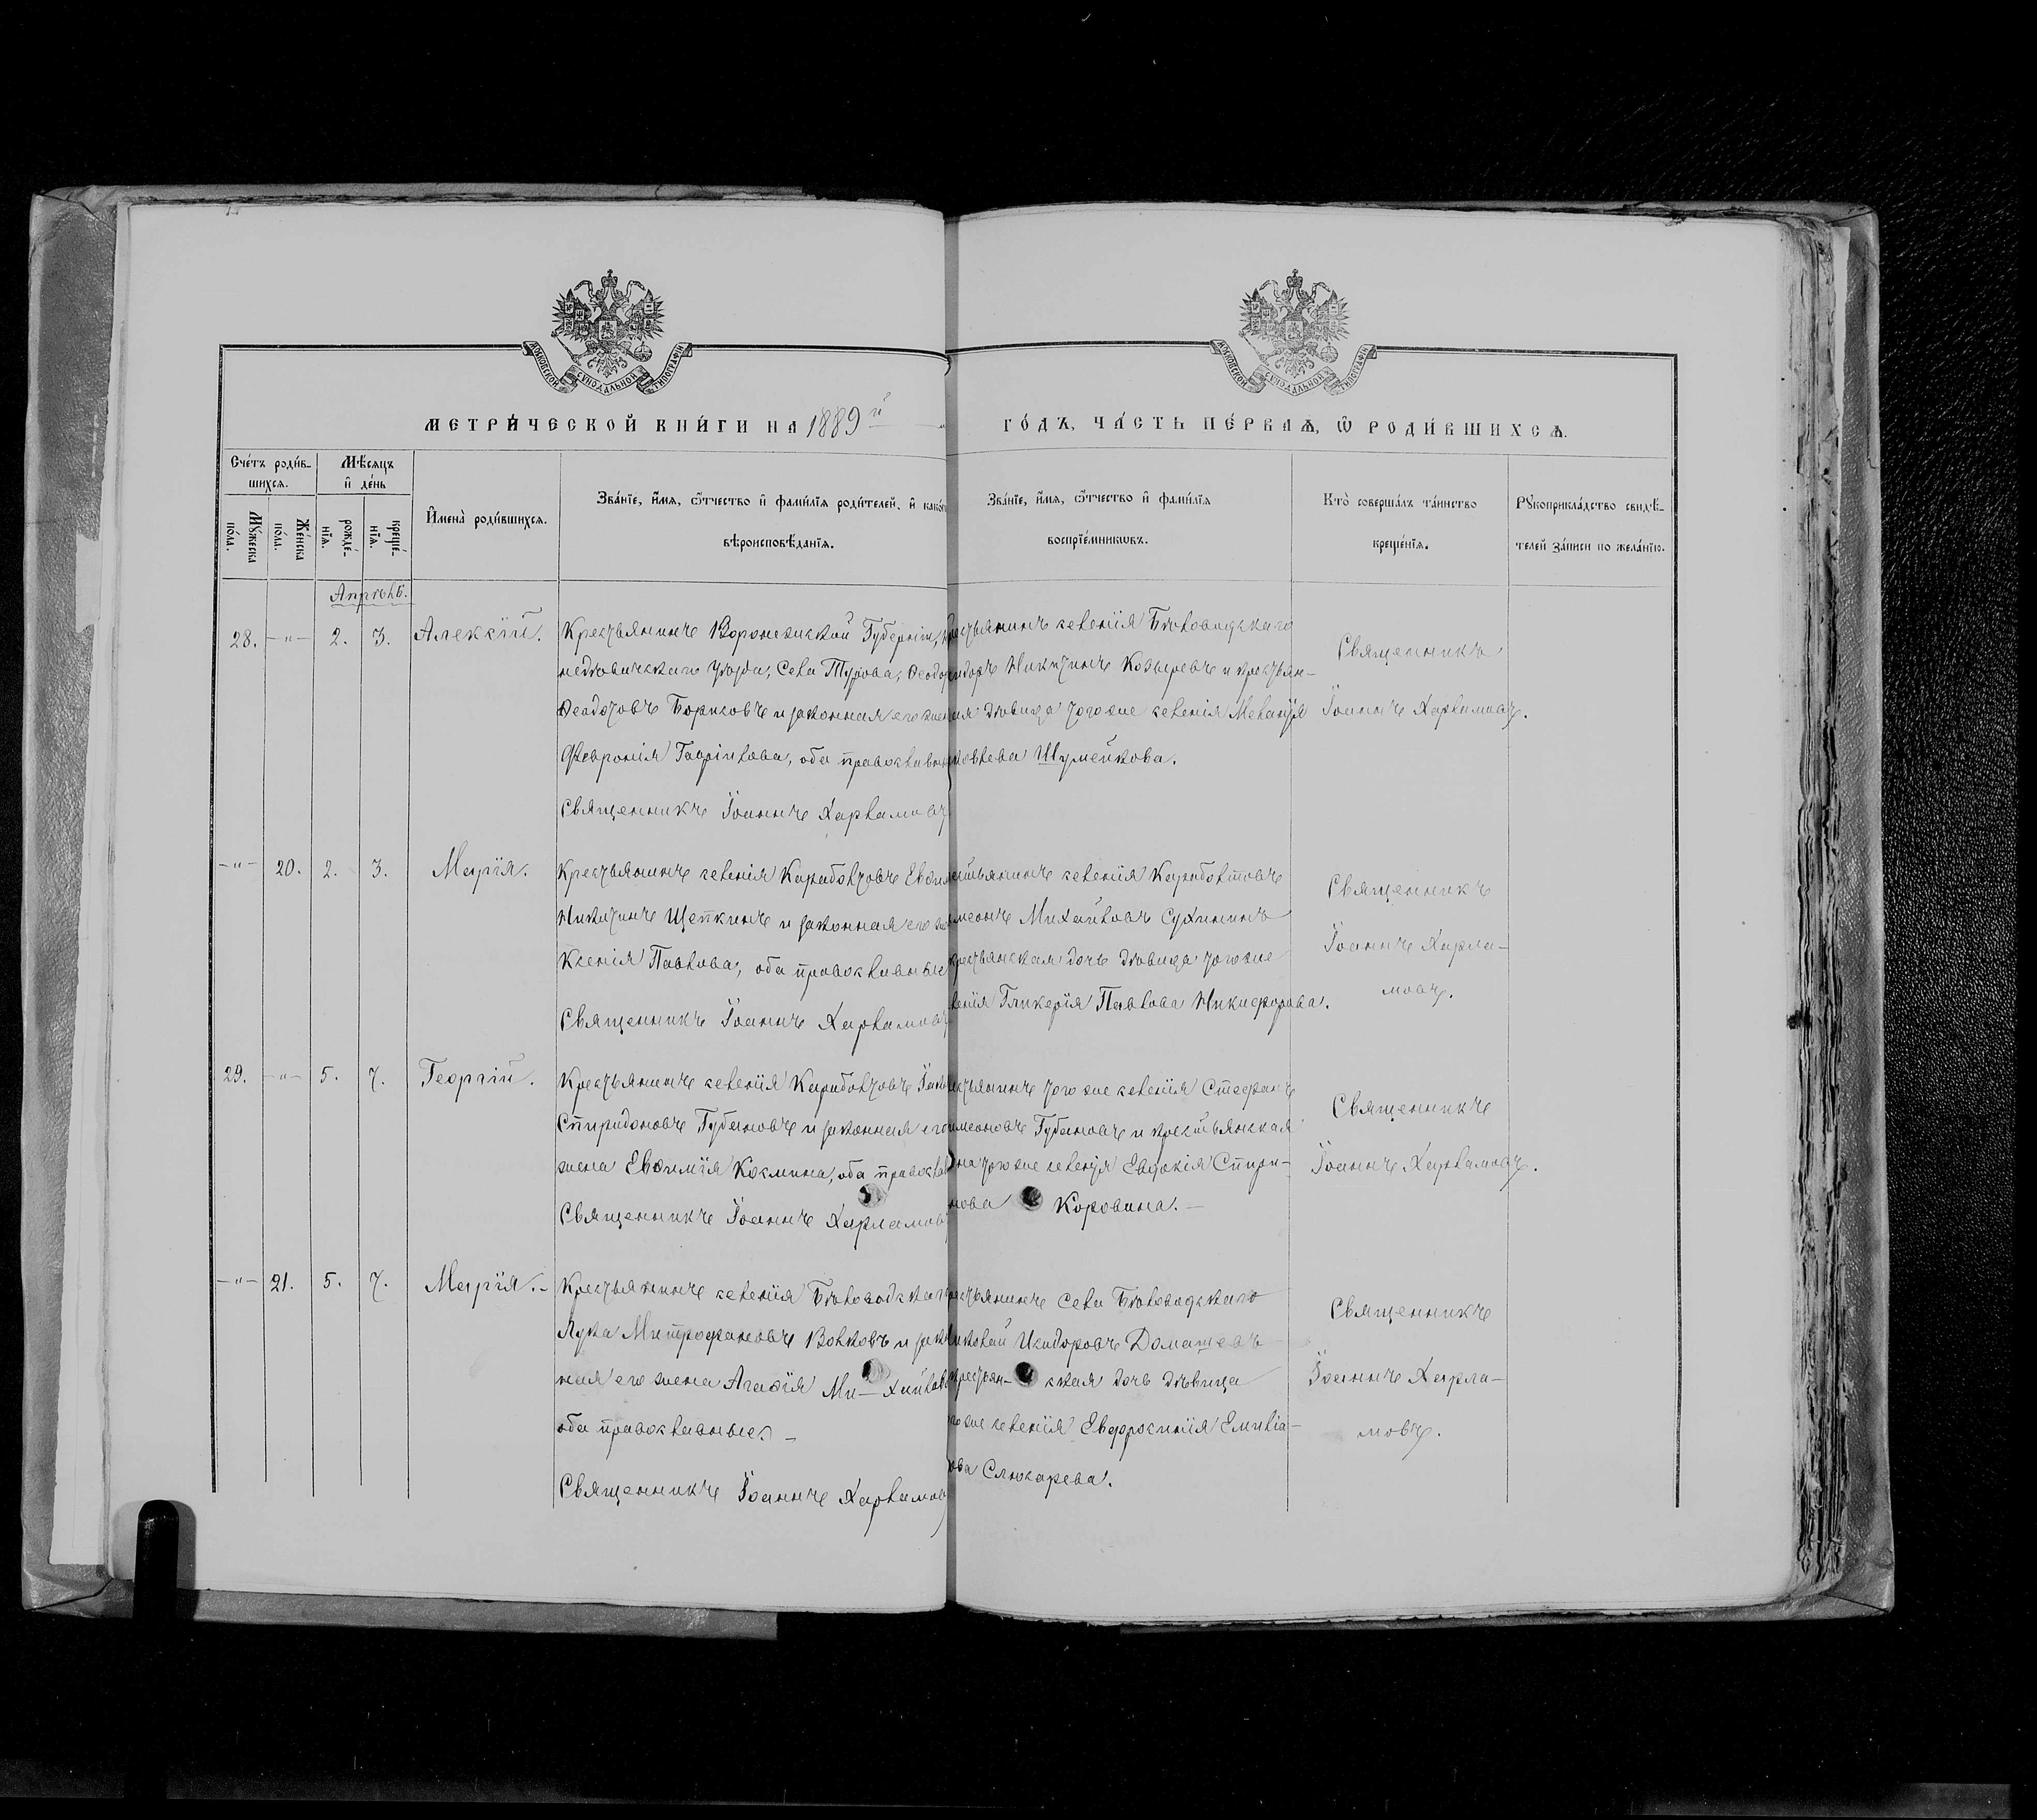 МОСКОВСКОЙ СУНОДАЛЬНОЙ ТИПОГРАФІИ
МОСКОВСКОЙ СУНОДАЛЬНОЙ ТИПОГРАФІИ
МЕТРИ́ЧЕСКОЙ КНИ́ГИ НА 1889й
ГО́ДЪ, ЧА́СТЬ ПЕ́РВАѦ, Ѽ РОДИ́ВШИХСѦ.
Сче́тъ роди́в-
шихся.
Му́жеска
по́ла.
Же́нска
по́ла.
Мѣ́сяцъ
и де́нь
рожде́-
нїѧ.
креще́-
нїѧ.
И҆мена̀ роди́вшихся.
Зва́нїе, и҆́мѧ, ѻ҆́тчество и҆ фами́лїѧ роди́телей, и҆ како́гѡ
вѣроисповѣ́данїѧ.
Зва́нїе, и҆́мѧ, ѻ҆́тчество и҆ фами́лїѧ
воспрїе́мникѡвъ.
Кто̀ соверша́лъ та́инство
креще́нїѧ.
Рꙋкоприкла́дство свидѣ́-
телей за́писи по жела́нїю.
Апрѣль.
28. —"— 2. 3. Алексій.
Крестьянинъ Воронежской Губерніи,
недѣвичскаго уѣзда, Села Турова, Феодоръ
Феодотовъ Борисовъ и законная его жена
Феврония Гаврилова, оба православные
Священникъ Іоаннъ Харламовъ
крестьянинъ селенія Бѣловодскаго
Никитинъ Козыревъ и крестьян-
ская дѣвица тогоже селенія Меланія
Яковлева Шумейкова.
Священникъ
Іоаннъ Харламовъ.
—"— 20. 2. 3. Марія.
Крестьянинъ селенія Карабалтовъ
Никитинъ Щеткинъ и законная его жена
Ксенія Павлова, оба православные
Священникъ Іоаннъ Харламовъ
Крестьянинъ селенія Карабалтовъ
Симеонъ Михайловъ Сухининъ
крестьянская дочь дѣвица тогоже
селенія Гликерія Павлова Никифорова.
Священникъ
Іоаннъ Харла-
мовъ.
29. —"— 5. 7. Георгій.
Крестьянинъ селенія Карабалтовъ
Спиридоновъ Губановъ и законная его
жена Евѳимія Космина, оба православные
Священникъ Іоаннъ Харламовъ
крестьянинъ тогоже селенія Стефанъ
Симеоновъ Губановъ и крестьянская
жена тогоже селенія Евдокія Спири-
донова Коровина. —
Священникъ
Іоаннъ Харламовъ.
—"— 21. 5. 7. Марія. -
Крестьянинъ селенія Бѣловодскаго
Лука Митрофановъ Волковъ и закон-
ная его жена Агаѳія Ми— хайлова
оба православные. —
Священникъ Іоаннъ Харламовъ
Крестьянинъ Села Бѣловодскаго
Николай Исидоровъ Домашевъ
крестьян— ская дочь дѣвица
тогоже селенія Евфросинія Емилiа-
нова Слюсарева.
Священникъ
Іоаннъ Харла-
мовъ.